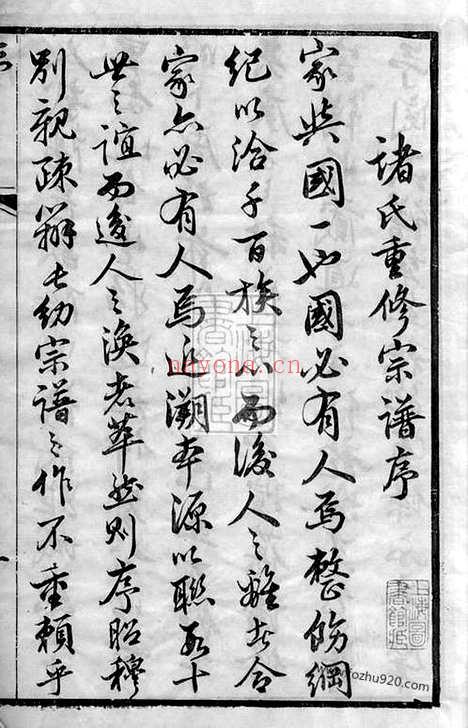 諸氏重修宗譜序
家與國一也國必有人焉整飭綱
紀以洽千百族之心而後人之離者合
家亦必有人焉追溯本源以聯數十
世之誼而後人之渙者萃然則序昭穆
別親疎辨長幼宗譜之作不重賴乎
上海圖書館藏
nayona.cn
fozhu920.com